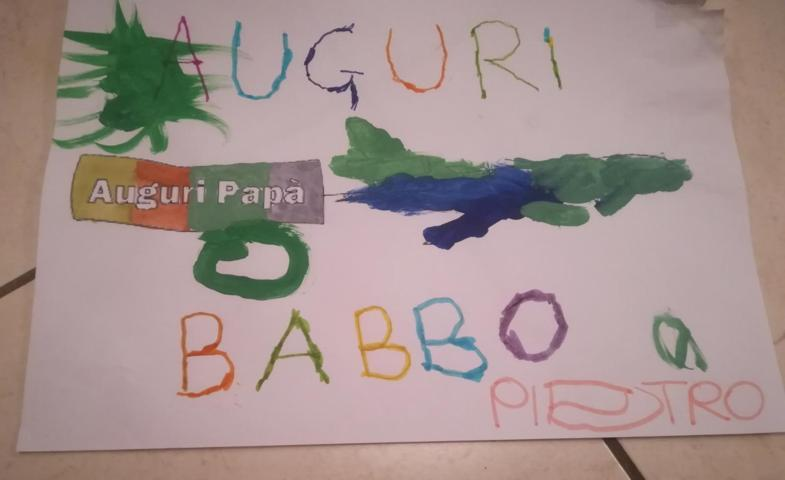 AUGURI
Auguri Papà
BABBO
PIETRO